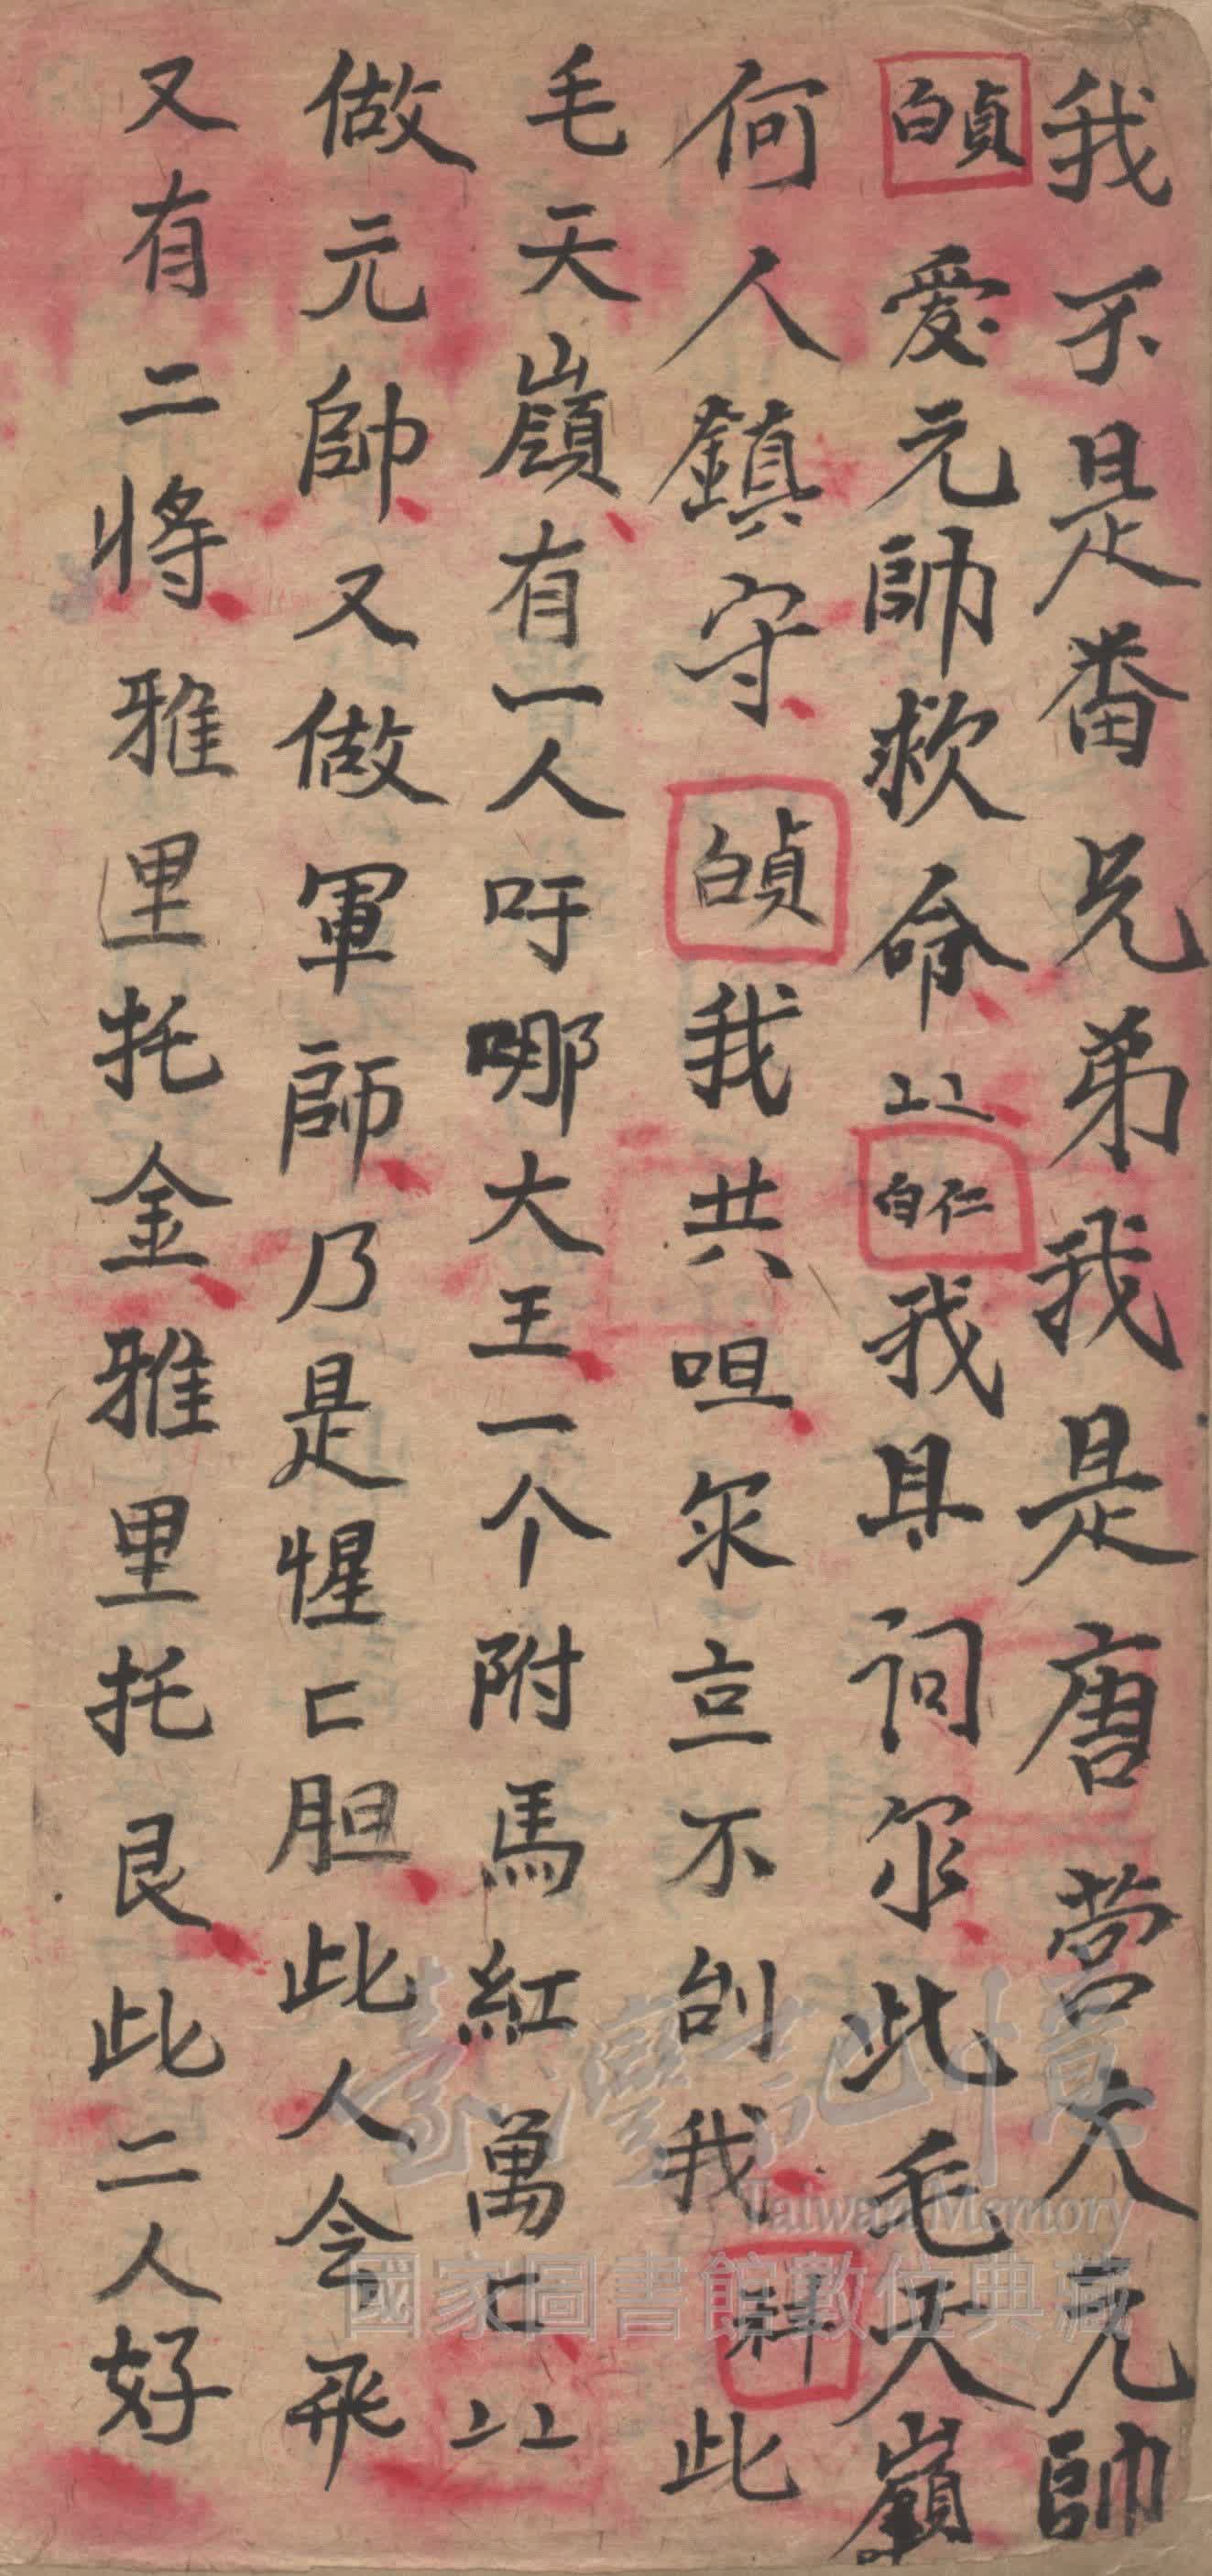 我不是番兄弟我是唐营大元帥
白貞愛元帥救命〻白仁我具词尔此毛天嶺
何人鎮守白貞我共咀尔言不刣我科此
毛天嶺有一人吁哪大王一个附馬紅萬匚〻
做元帥又做軍師乃是惺匚胆此人令飛
又有二将雅里托金雅里托艮此二人好
臺灣記憶
Taiwan Memory
國家圖書館數位典藏